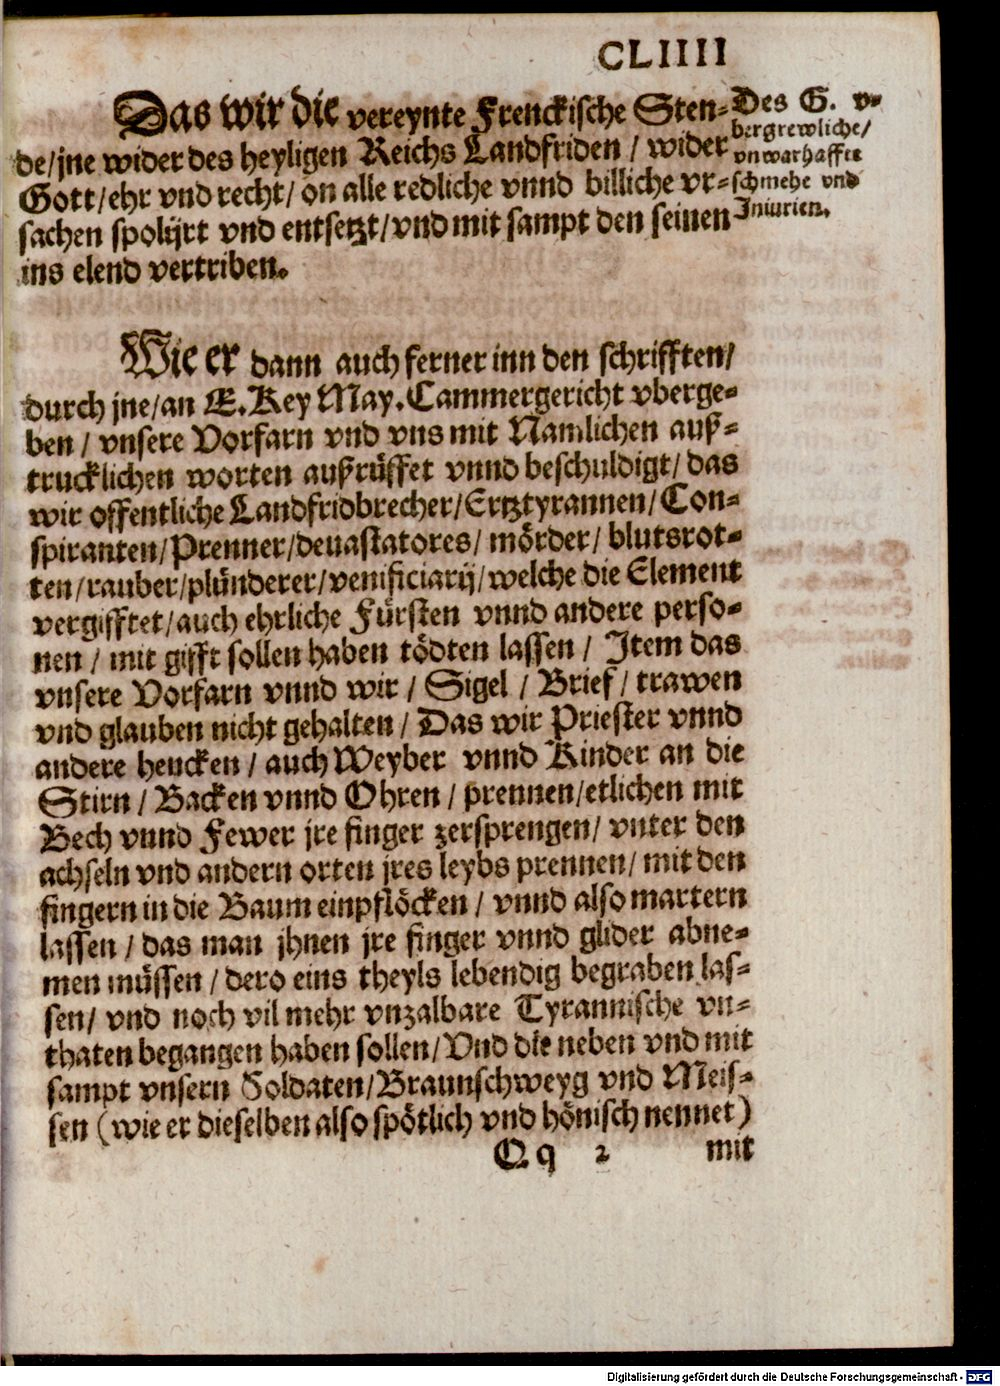 CLIIII
Das wir die vereynte Frenckische Sten-
de/jne wider des heyligen Reichs Landfriden / wider
Gott/ehr vnd recht/ on alle redliche vnnd billiche vr-
sachen spolijrt vnd entsetzt/vnd mit sampt den seinen
ins elend vertriben.
Des G. v-
bergrewliche/
vnwarhaffte
schmehe vnd
Iniurien.
Wie er dann auch ferner inn den schrifften/
durch jne/an E.Key May.Cammergericht vberge-
ben / vnsere Vorfarn vnd vns mit Namlichen auß-
trucklichen worten außrüffet vnnd beschuldigt/ das
wir offentliche Landfridbrecher/Ertztyrannen/ Con-
spiranten/Prenner/deuastatores/ mörder/ blutsrot-
ten/rauber/plünderer/venificiarij/welche die Element
vergifftet/auch ehrliche Fürsten vnnd andere perso-
nen / mit gifft sollen haben tödten lassen / Item das
vnsere Vorfarn vnnd wir / Sigel / Brief / trawen
vnd glauben nicht gehalten / Das wir Priester vnnd
andere hencken / auch Weyber vnnd Kinder an die
Stirn / Backen vnnd Ohren / prennen/etlichen mit
Bech vnnd Fewer jre finger zersprengen/ vnter den
achseln vnd andern orten jres leybs prennen/ mit den
fingern in die Baum einpflöcken / vnnd also martern
lassen / das man jhnen jre finger vnnd glider abne-
men müssen / dero eins theyls lebendig begraben las-
sen/ vnd noch vil mehr vnzalbare Tyrannische vn-
thaten begangen haben sollen/Vnd die neben vnd mit
sampt vnsern Soldaten/Braunschweyg vnd Meis-
sen (wie er dieselben also spötlich vnd hönisch nennet)
Q q 2 mit
Digitalisierung gefördert durch die Deutsche Forschungsgemeinschaft - DFG